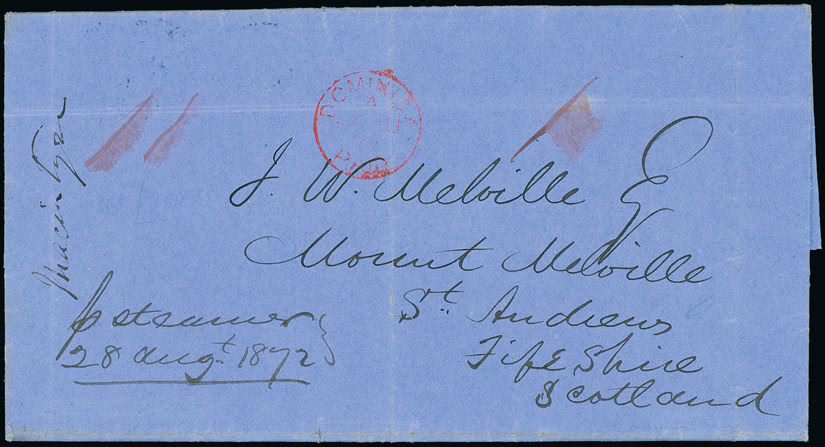 DOMINICA
A
PAID
J. W. Melville Esq
Mount Melville
St. Andrews
Fife Shire
Scotland
Macintyre
p steamer
28 augt. 1872